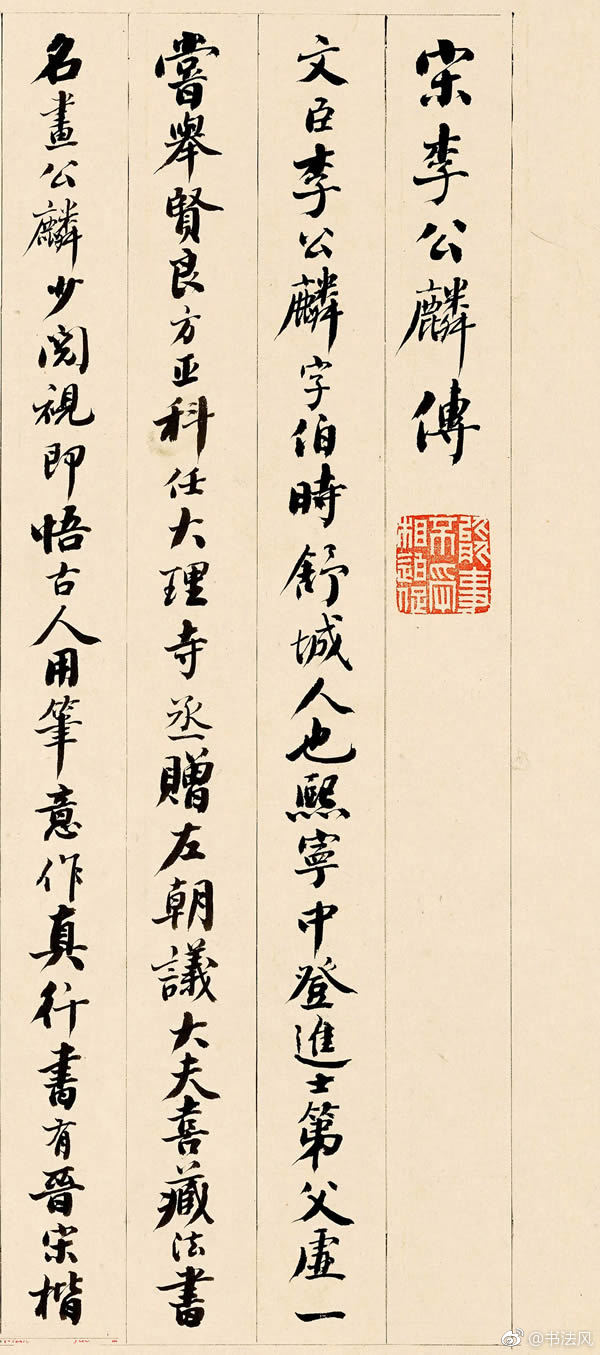 宋李公麟傳
文臣李公麟字伯時舒城人也熙寧中登進士第父虛一
嘗舉賢良方正科任大理寺丞贈左朝議大夫喜藏法書
名畫公麟少閱視即悟古人用筆意作真行書有晉宋楷
@书法风